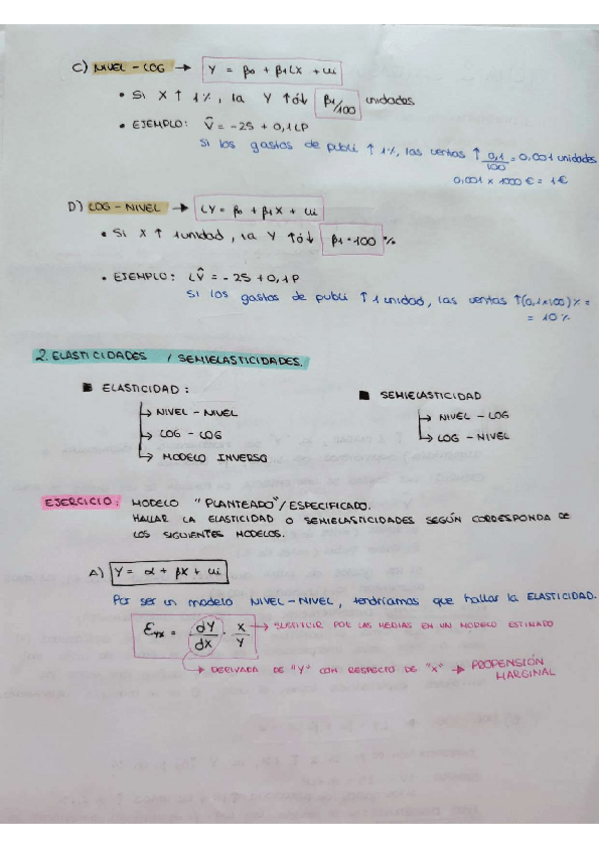 C) NIVEL - LOG → Y = β0 + β1LX + ui
• Si X ↑ 1%, la Y ↑ó↓ β1/100 unidades.
• EJEMPLO: V̂ = -25 + 0,1LP
Si los gastos de publi ↑ 1%, las ventas ↑ 0,1/100 = 0,001 unidades
0,001 x 1000€ = 1€
D) LOG - NIVEL → LY = β0 + β1X + ui
• Si X ↑ 1unidad, la Y ↑ó↓ β1·100 %
• EJEMPLO: LV̂ = -25 + 0,1P
Si los gastos de publi ↑ 1 unidad, las ventas ↑(0,1x100)% =
= 10%
2. ELASTICIDADES / SEMIELASTICIDADES.
■ ELASTICIDAD:
↳ NIVEL - NIVEL
↳ LOG - LOG
↳ MODELO INVERSO
■ SEMIELASTICIDAD
↳ NIVEL - LOG
↳ LOG - NIVEL
EJERCICIO: MODELO "PLANTEADO"/ESPECIFICADO.
HALLAR LA ELASTICIDAD O SEMIELASTICIDADES SEGÚN CORRESPONDA DE
LOS SIGUIENTES MODELOS.
A) Y = α + βX + ui
Por ser un modelo NIVEL-NIVEL, tendríamos que hallar la ELASTICIDAD.
Eyx = dY/dX · X/Y → SUSTITUIR POR LAS MEDIAS EN UN MODELO ESTIMADO
→ DERIVADA DE "Y" CON RESPECTO DE "X" → PROPENSIÓN
MARGINAL